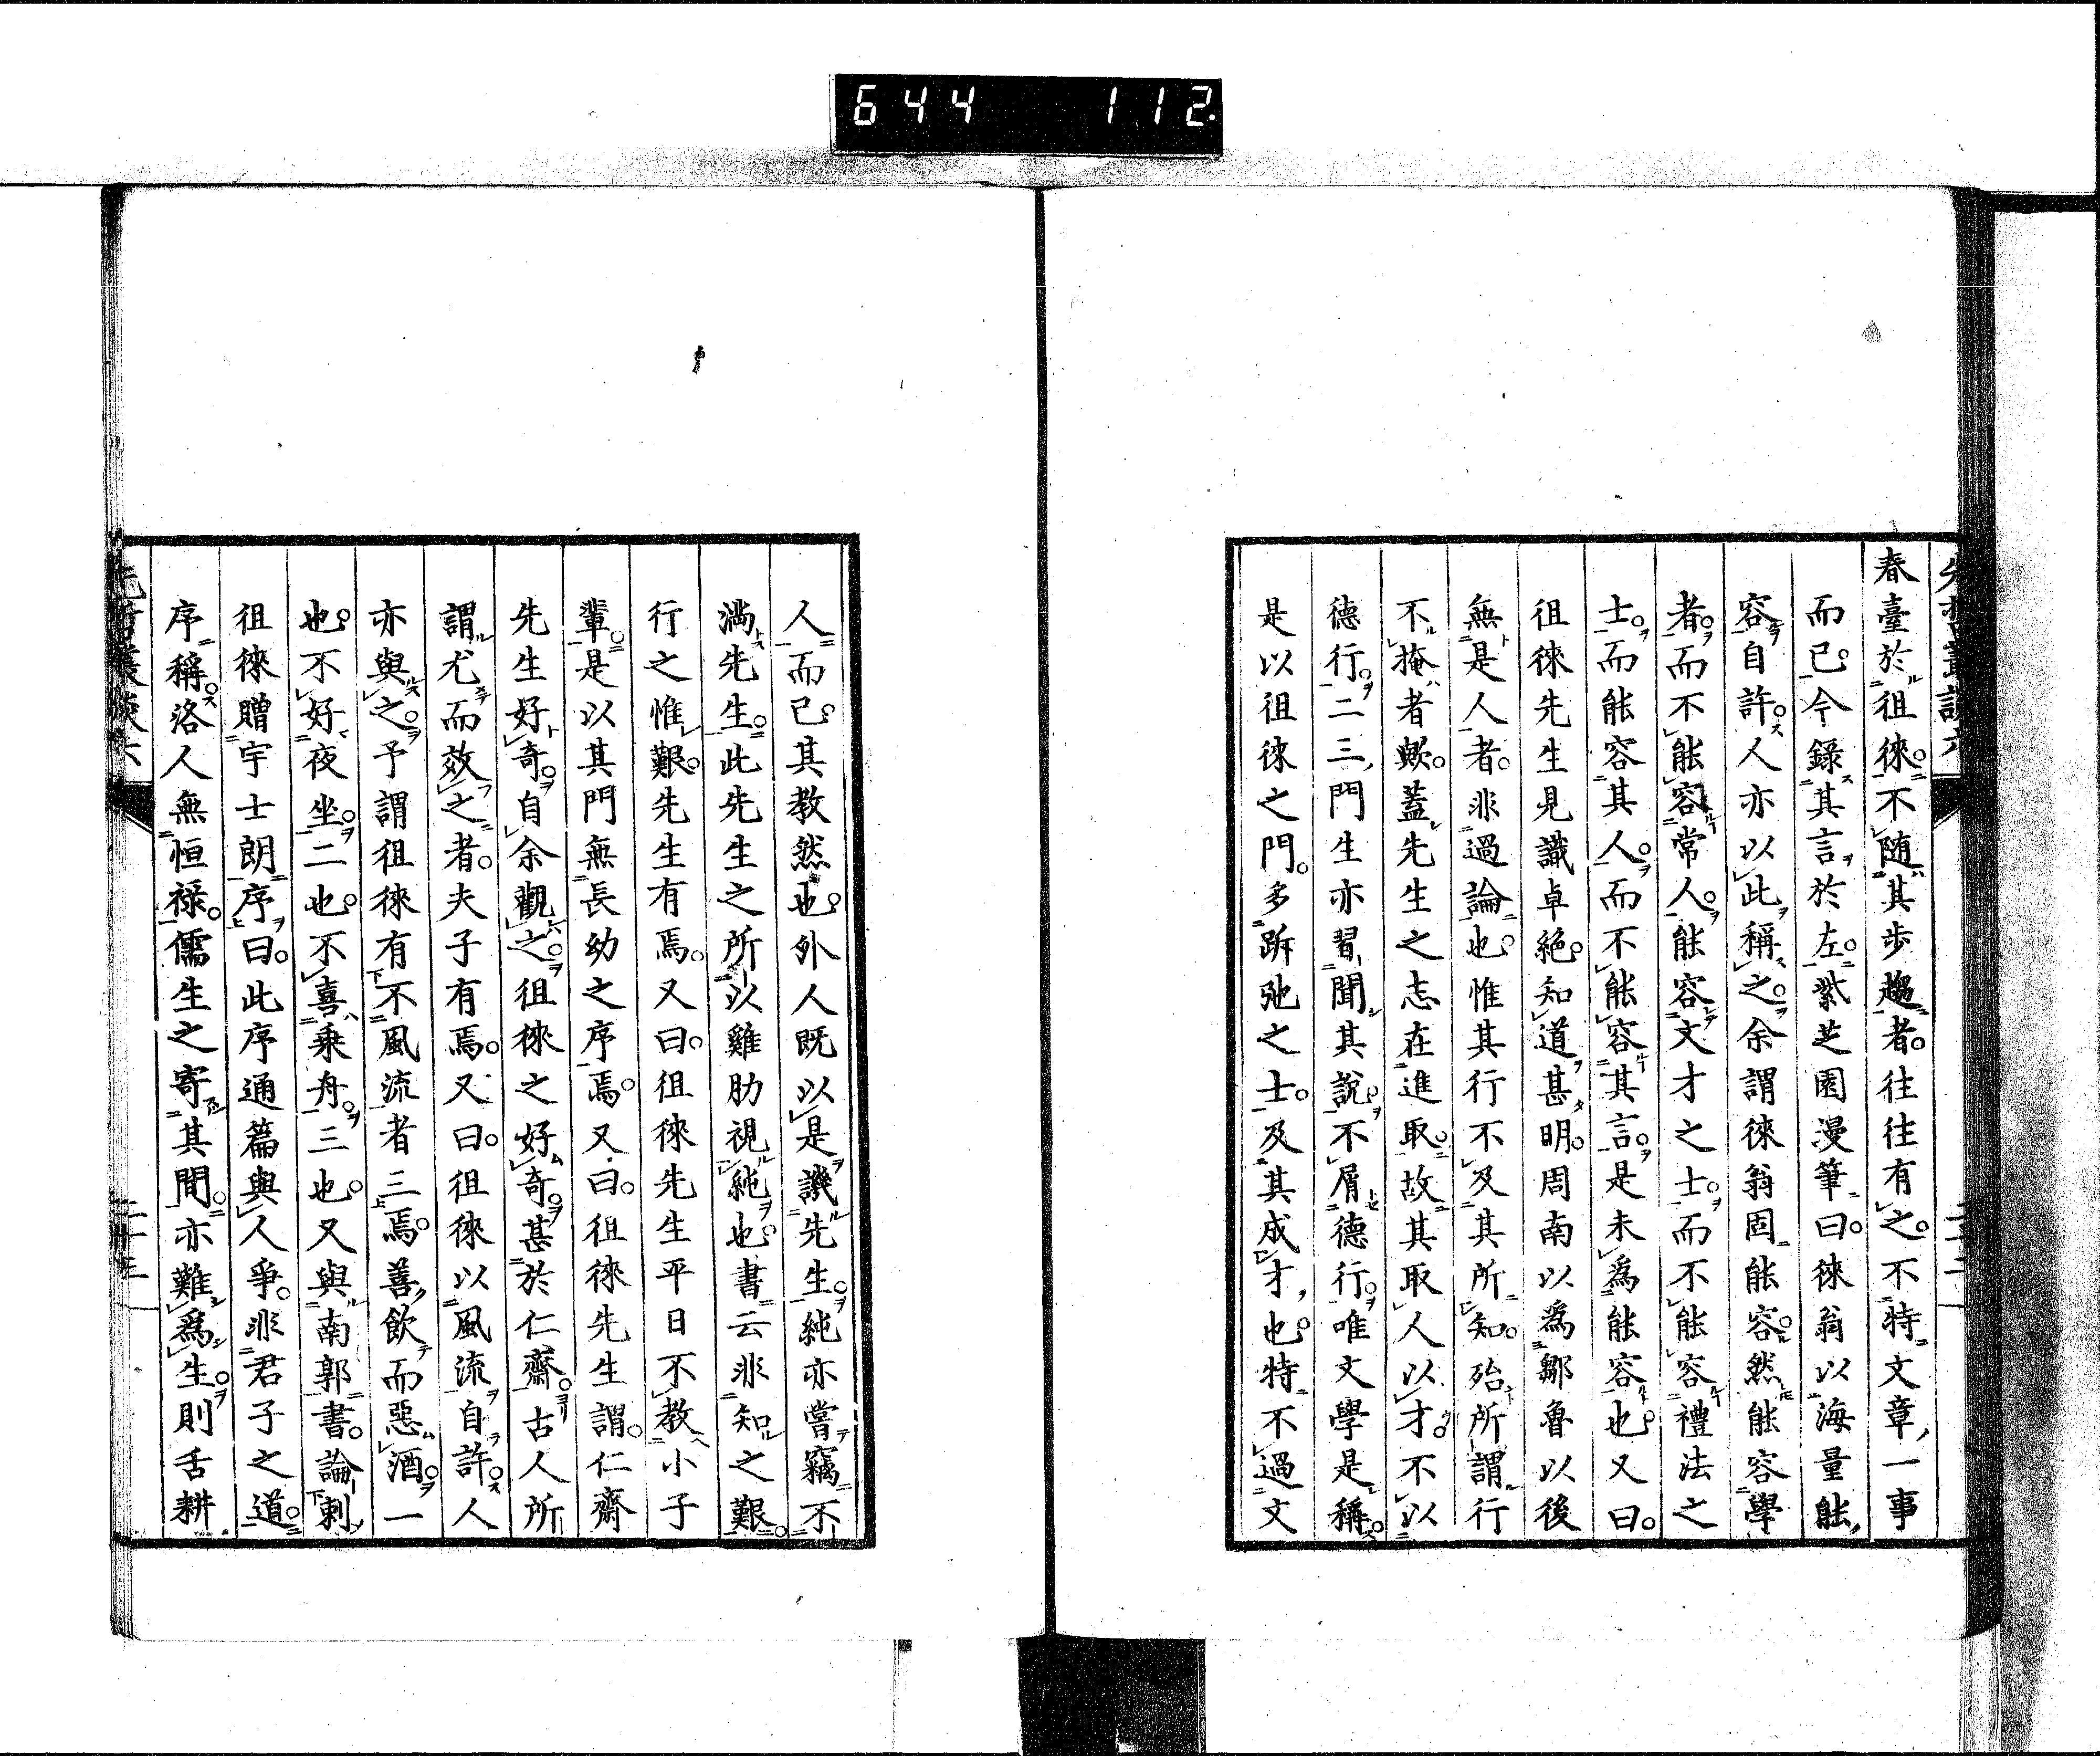 644 112.
春臺於徂徠。不随其歩趨者。往往有之。不特文章一事
而已。今錄其言於左。紫芝園漫筆曰。徠翁以海量能
容自許。人亦以此稱之。余謂徠翁固能容。然能容學
者。而不能容常人。能容文才之士。而不能容禮法之
士。而能容其人。而不能容其言。是未爲能容也。又曰。
徂徠先生見識卓絶。知道甚明。周南以爲鄒魯以後
無是人者。非過論也。惟其行不及其所知。殆所謂行
不掩者歟。蓋先生之志在進取。故其取人以才。不以
德行。二三門生亦習聞其説。不屑德行。唯文學是稱。
是以徂徠之門。多跅弛之士。及其成才也。特不過文
人而已。其教然也。外人既以是譏先生。純亦嘗竊不
滿先生。此先生之所以雞肋視純也。書云。非知之艱。
行之惟艱。先生有焉。又曰。徂徠先生平日不教小子
輩。是以其門無長幼之序焉。又曰。徂徠先生謂。仁齋
先生好奇。自余觀之。徂徠之好奇。甚於仁齋。古人所
謂尤而效之者。夫子有焉。又曰。徂徠以風流自許。人
亦與之。予謂徂徠有不風流者三焉。善飲而惡酒。一
也。不好夜坐。二也。不喜乘舟。三也。又與南郭書。論刺
徂徠贈宇士朗序曰。此序通篇與人爭。非君子之道。
序稱。洛人無恒祿。儒生之寄其間。亦難爲生。則舌耕